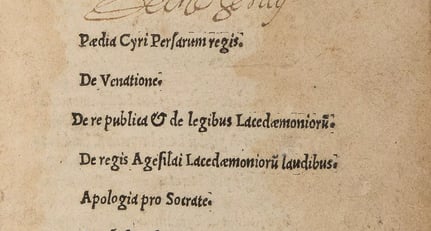 Pædia Cyri Perſarum regis.
De Venatione.
De re publica & de legibus Lacedæmoniorũ.
De regis Ageſilai Lacedæmoniorũ laudibus.
Apologia pro Socrate.